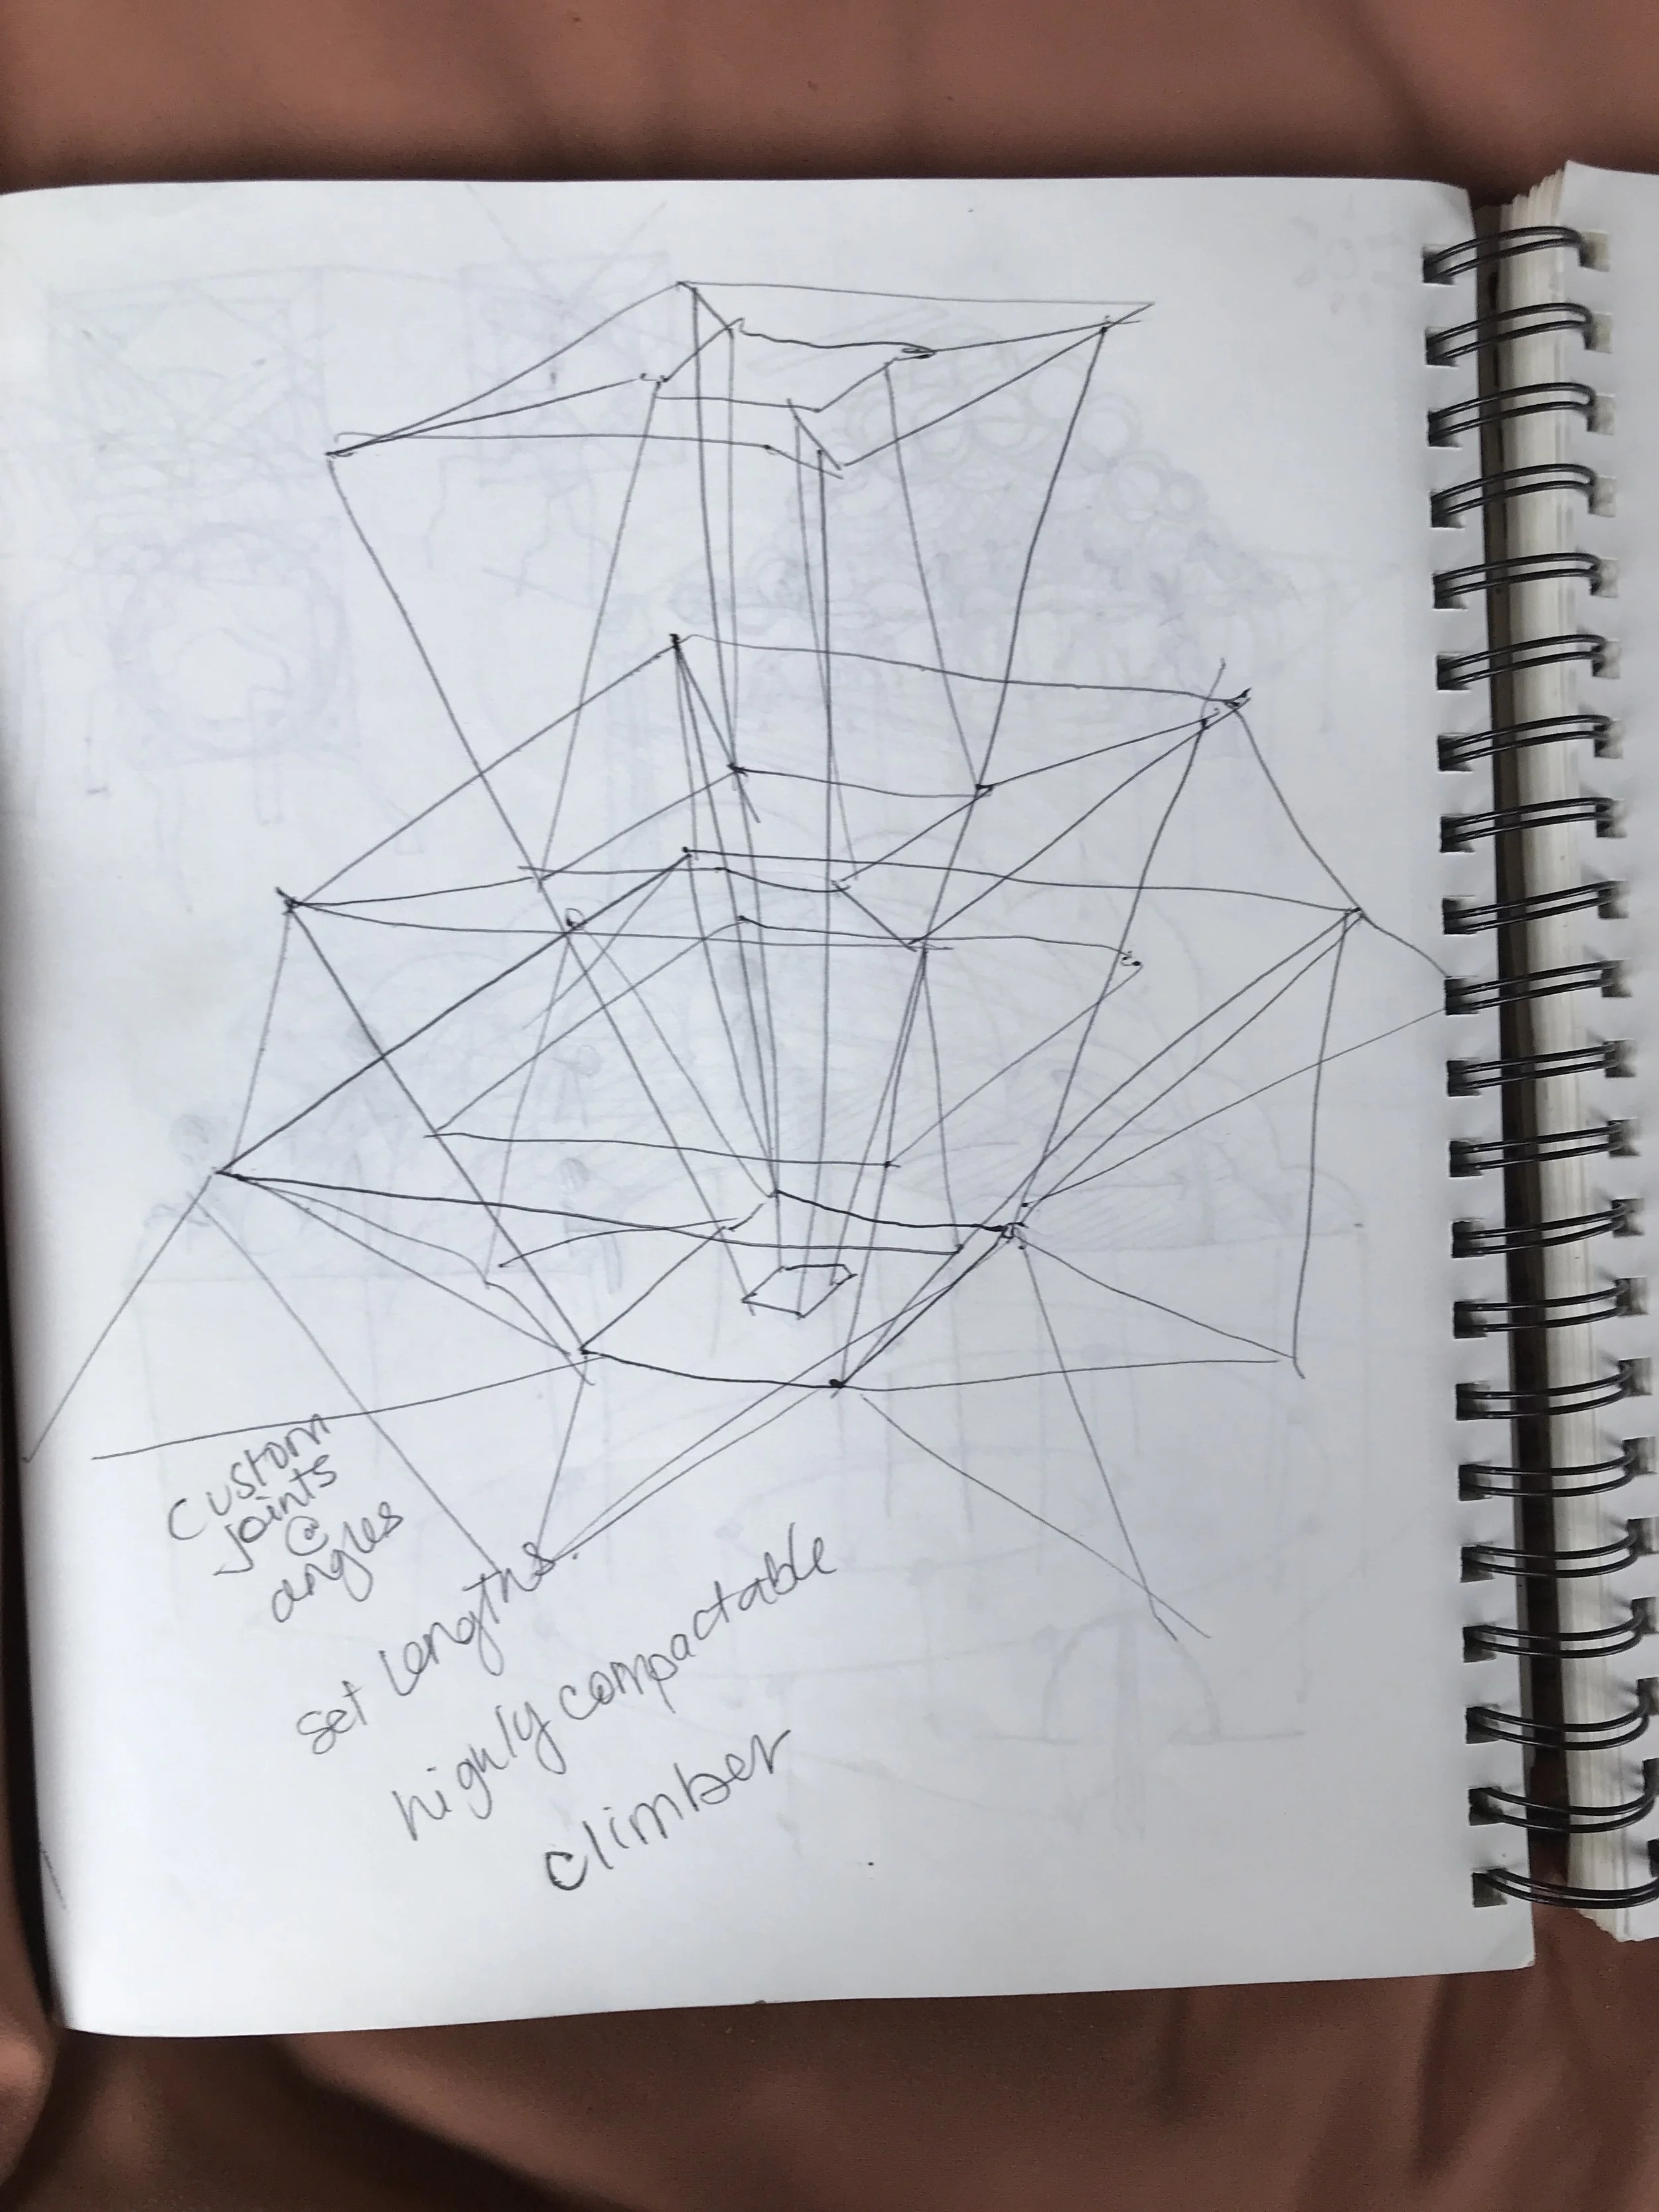 custom
joints
@
angles
set lengths
highly compactable
climber